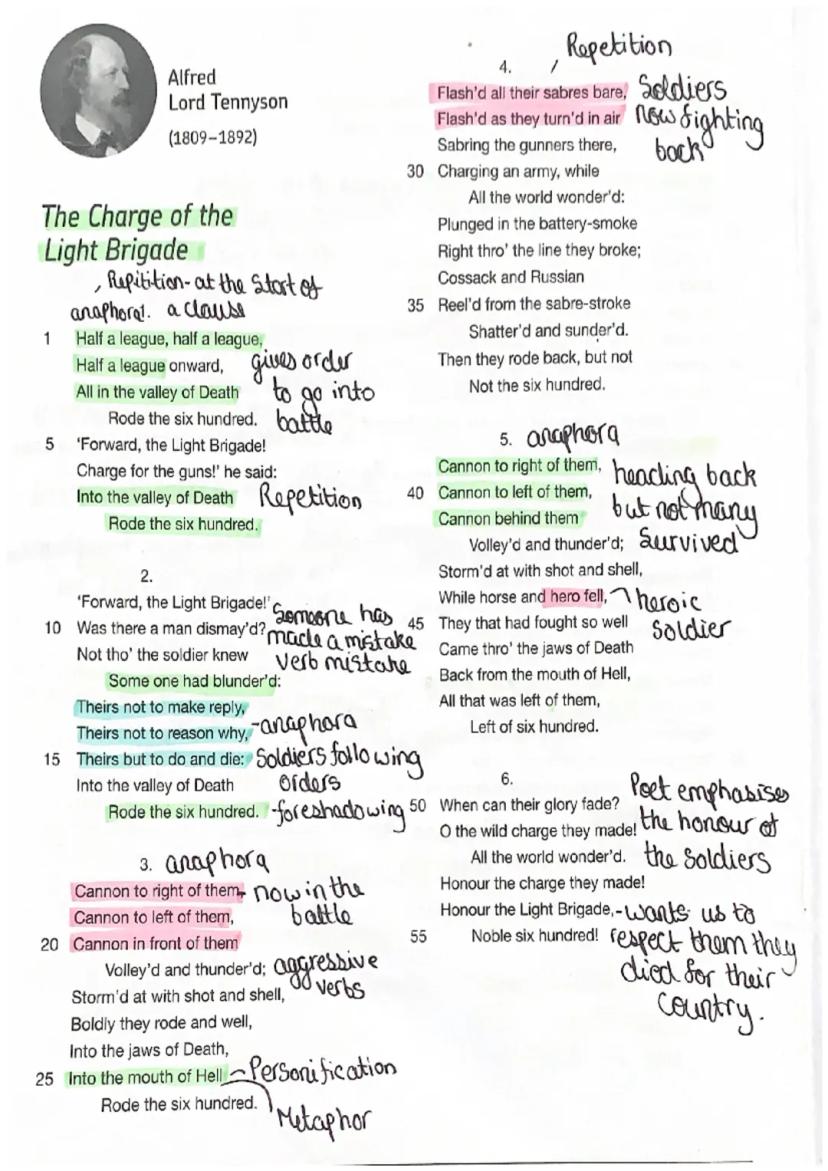 Alfred
Lord Tennyson
(1809–1892)
The Charge of the
Light Brigade
, Repitition- at the start of
anaphora!. a clause
1 Half a league, half a league,
Half a league onward, gives order
All in the valley of Death to go into
Rode the six hundred. battle
5 'Forward, the Light Brigade!
Charge for the guns!' he said:
Into the valley of Death Repetition
Rode the six hundred.
2.
'Forward, the Light Brigade!' Someone has
10 Was there a man dismay'd? made a mistake
Not tho' the soldier knew verb mistake
Some one had blunder'd:
Theirs not to make reply,
Theirs not to reason why, -anaphora
15 Theirs but to do and die: Soldiers following
Into the valley of Death orders
Rode the six hundred. -foreshadowing
3. anaphora
Cannon to right of them, - now in the
Cannot to left of them, battle
20 Cannon in front of them
Volley'd and thunder'd; aggressive
Storm'd at with shot and shell, verbs
Boldly they rode and well,
Into the jaws of Death,
25 Into the mouth of Hell Personification
Rode the six hundred. Metaphor
4. , Repetition
Flash'd all their sabres bare, Soldiers
Flash'd as they turn'd in air now fighting
Sabring the gunners there, back
30 Charging an army, while
All the world wonder'd:
Plunged in the battery-smoke
Right thro' the line they broke;
Cossack and Russian
35 Reel'd from the sabre-stroke
Shatter'd and sunder'd.
Then they rode back, but not
Not the six hundred.
5. anaphora
Cannon to right of them, heading back
40 Cannon to left of them, but not many
Cannon behind them survived
Volley'd and thunder'd;
Storm'd at with shot and shell,
While horse and hero fell, heroic
45 They that had fought so well soldier
Came thro' the jaws of Death
Back from the mouth of Hell,
All that was left of them,
Left of six hundred.
6.
50 When can their glory fade? Poet emphasises
O the wild charge they made! the honour of
All the world wonder'd. the soldiers
Honour the charge they made!
Honour the Light Brigade, -wants us to
55 Noble six hundred! respect them they
died for their
country.